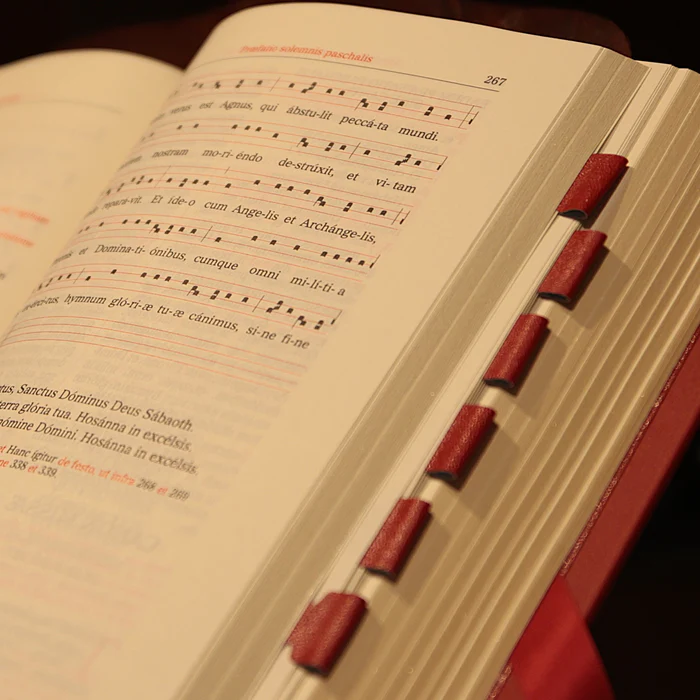 Præfatio solemnis paschalis
267
est Agnus, qui ábstu-lit peccá-ta mundi.
nostram mo-ri-éndo de-strúxit, et vi-tam
repará-vit. Et íde-o cum Ange-lis et Archánge-lis,
et Domina-ti-ónibus, cumque omni mi-lí-ti-a
hymnum gló-ri-æ tu-æ cánimus, si-ne fi-ne
Sanctus Dóminus Deus Sábaoth.
terra glória tua. Hosánna in excélsis.
nómine Dómini. Hosánna in excélsis.
et Hanc ígitur de festo, ut infra 268 et 269.
338 et 339.